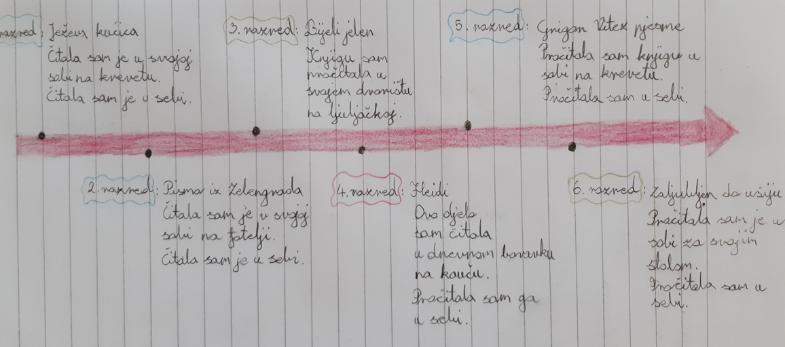 razred: Ježeva kućica
Čitala sam je u svojoj
sobi na krevetu.
Čitala sam je u sebi.
3. razred: Bijeli jelen
Knjigu sam
pročitala u
svojem dvorištu
na ljuljačkoj.
5. razred: Grigor Vitez pjesme
Pročitala sam knjigu u
sobi na krevetu.
Pročitala sam u sebi.
2. razred: Pisma iz Zelengrada
Čitala sam je u svojoj
sobi na fotelji.
Čitala sam je u sebi.
4. razred: Heidi
Ovo djelo
sam čitala
u dnevnom boravku
na kauču.
Pročitala sam ga
u sebi.
6. razred: Zaljubljen do ušiju
Pročitala sam je u
sobi za svojim
stolom.
Pročitala sam u
sebi.